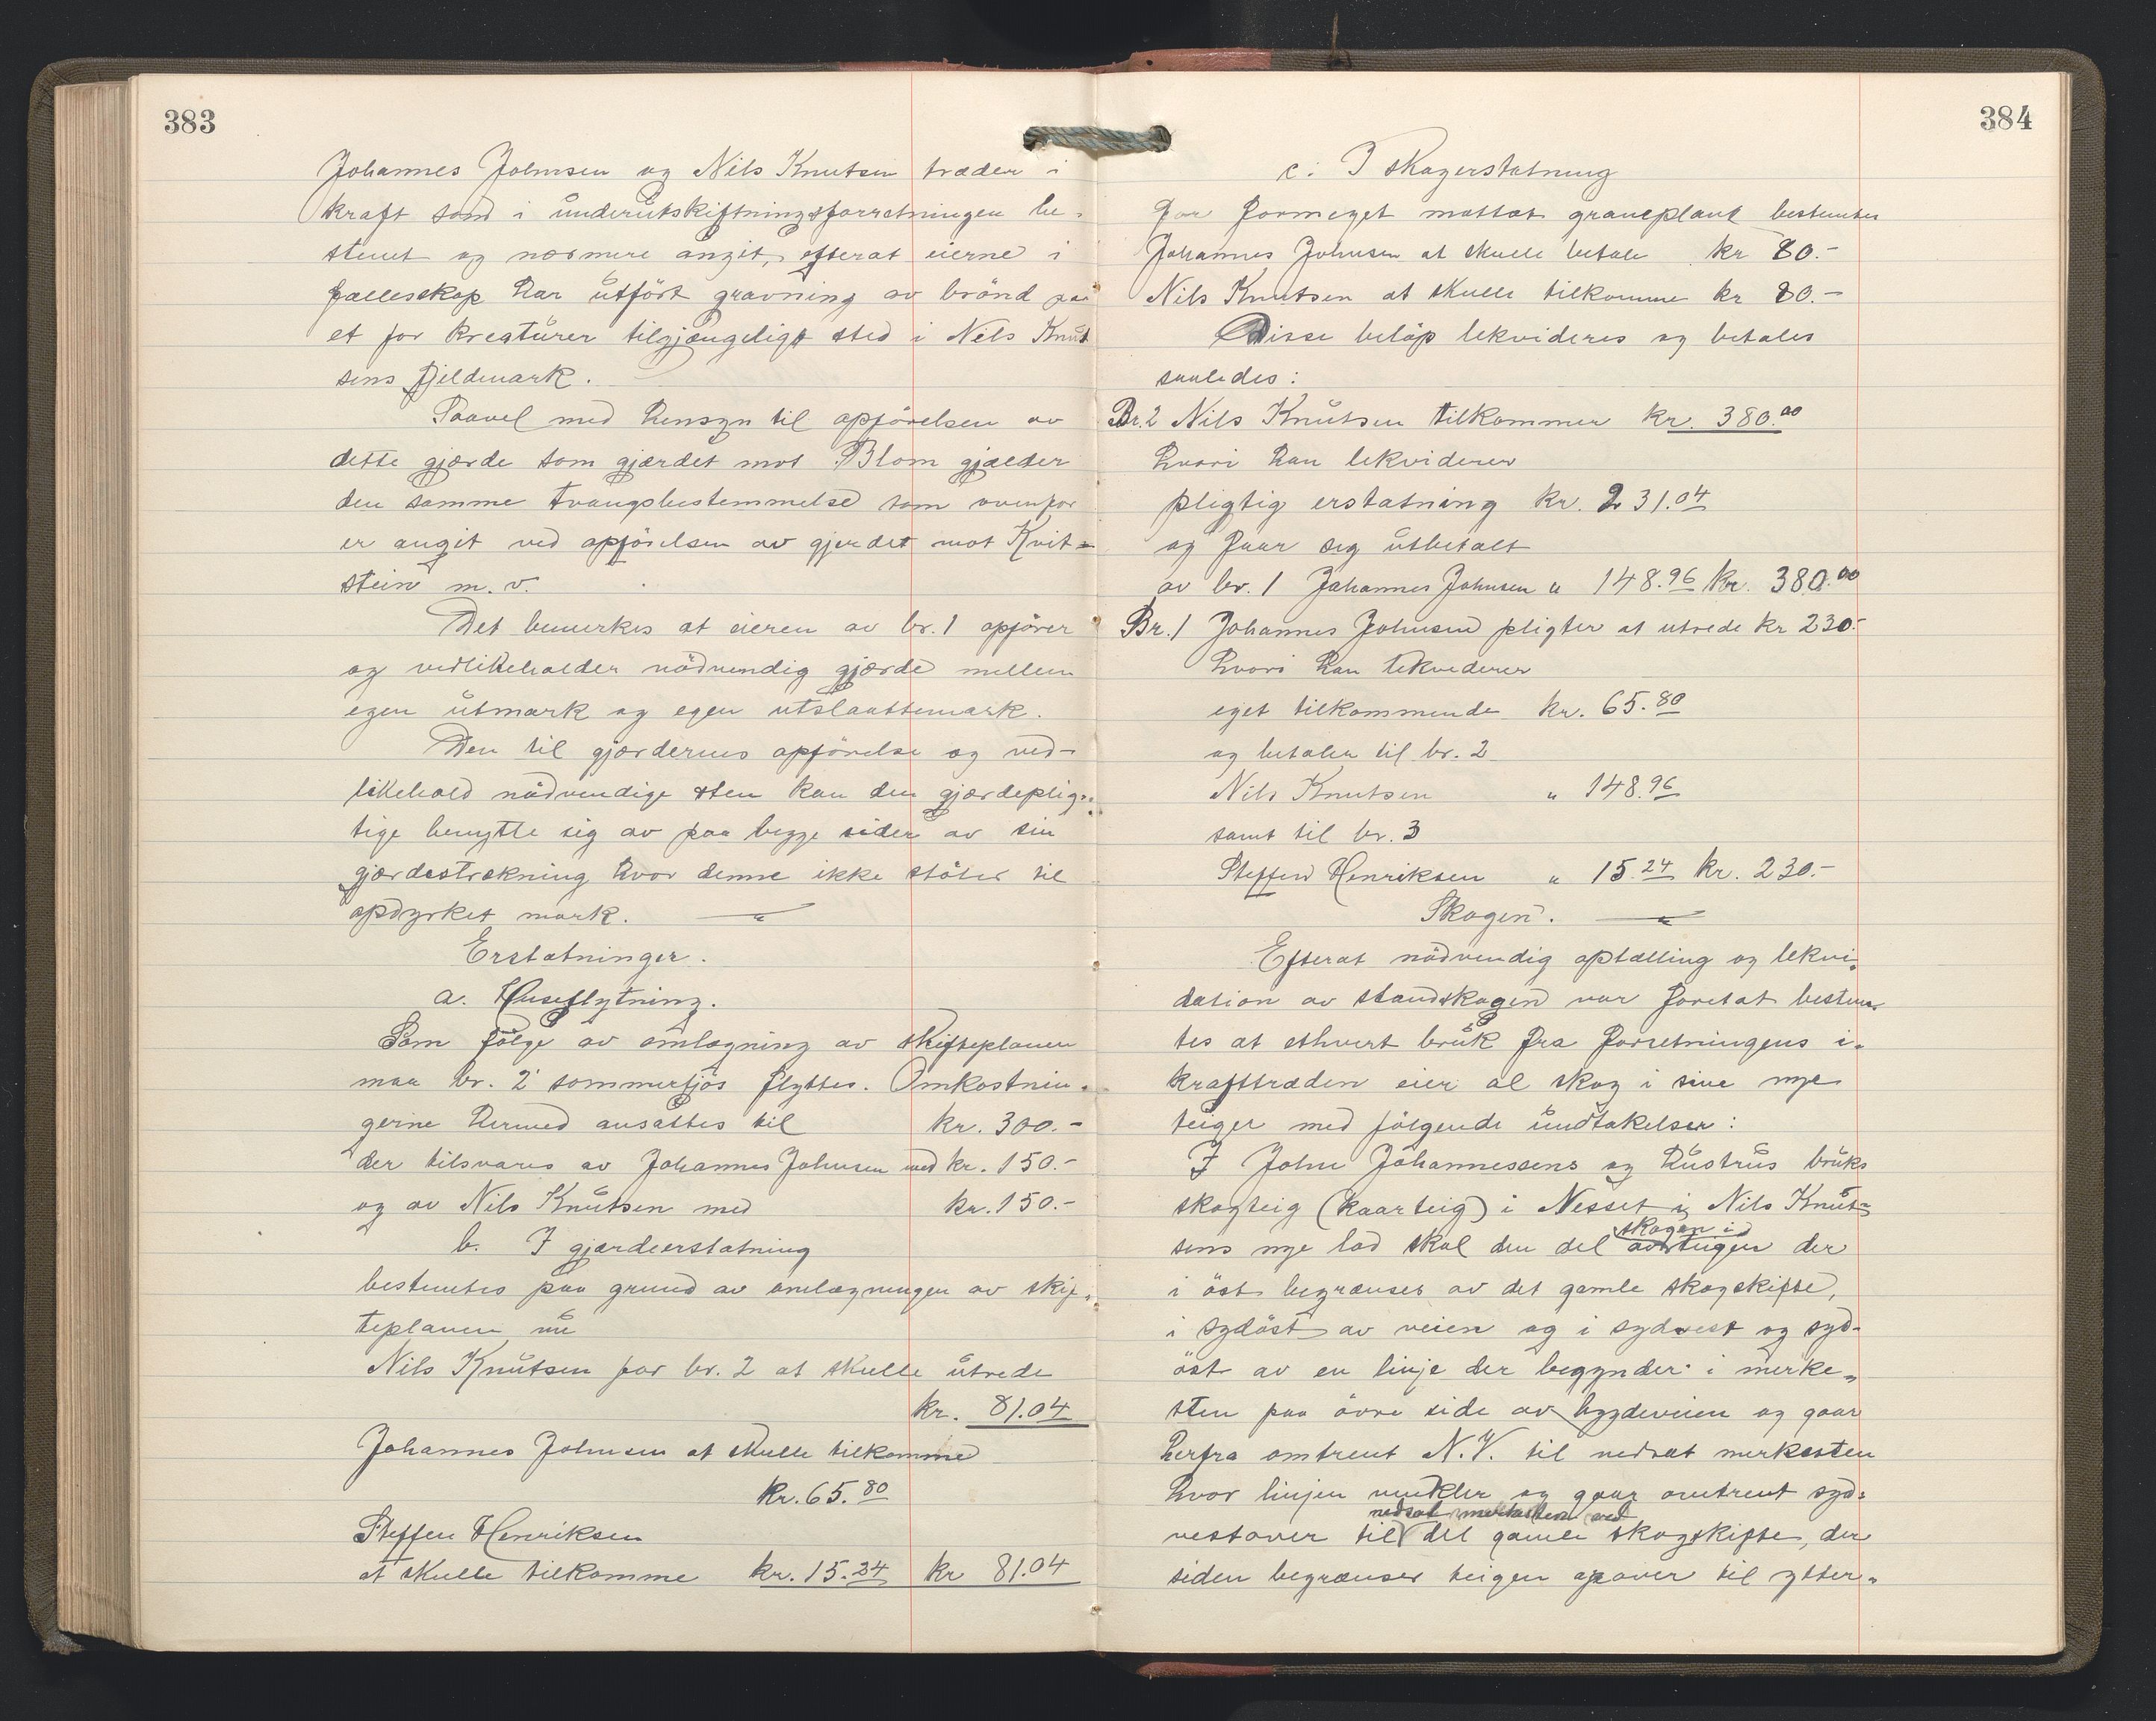 383
Johannes Johnsen og Nils Knutsen træder i
kraft som i underutskiftningsforretningen be-
stemt og nærmere angit, efterat eierne i
fællesskap har utfört gravning av brönd paa
et for kreaturer tilgjængeligt sted i Nils Knut
sens fjeldmark.
Saavel med hensyn til opförelsen av
dette gjærde som gjærdet mot Blom gjælder
den samme tvangsbestemmelse som ovenfor
er angit ved opförelsen av gjerdet mot Kvit=
stein m. v.
Det bemerkes at eieren av br. 1 opförer
og vedlikeholder nödvendig gjærde mellem
egen utmark og egen utslaattemark.
Den til gjærdernes opförelse og ved-
likehold nödvendige sten kan den gjærdeplig-
tige benytte sig av paa begge sider av sin
gjærdestrekning hvor denne ikke stöter til
opdyrket mark.
Erstatninger.
a. Huseflytning.
Som fölge av omlægning av skifteplanen
maa br. 2 sommerfjös flyttes. Omkostnin-
gerne hermed ansattes til kr. 300.-
der tilsvares av Johannes Johnsen med kr. 150.-
og av Nils Knutsen med kr. 150.-
b. I gjærdeerstatning
bestemtes paa grund av omlægningen av skif-
teplanen nu
Nils Knutsen for br. 2 at skulle utrede
kr. 81.04
Johannes Johnsen at skulle tilkomme
kr. 65.80
Steffen Henriksen
at skulle tilkomme kr. 15.24 kr 81.04
384
c: I skogerstatning
for formeget mottat graneplank bestemtes
Johannes Johnsen at skulle betale kr 80.-
Nils Knutsen at skulle tilkomme kr 80.-
Disse belöp lekvideres og betales
saaledes:
Br. 2 Nils Knutsen tilkommer kr. 380.00
hvori han lekviderer
pligtig erstatning kr. 231.04
og faar seg utbetalt
av br. 1 Johannes Johnsen " 148.96 kr. 380.00
Br. 1 Johannes Johnsen pligter at utrede kr 230.-
hvori han lekviderer
eget tilkommende kr. 65.80
og betaler til br. 2
Nils Knutsen " 148.96
samt til br. 3
Steffen Henriksen " 15.24 kr. 230.-
Skogen.
Efterat nödvendig optælling og lekvi-
dation av standskogen var foretat bestem-
tes at ethvert bruk fra forretningens i-
krafttræden eier al skog i sine nye
teiger med fölgende undtakelser:
I John Johannessens og hustrus bruks
skogteig (kaarteig) i Nesset i Nils Knut-
sens nye lod skal den del skogen i teigen der
i öst begrænses av det gamle skogskifte,
i sydöst av veien og i sydvest og syd-
öst av en linje der begynder i merke-
sten paa övre side av bygdeveien og gaar
herfra omtrent N.V. til nedsat merkesten
hvor linjen vinkler og gaar omtrent syd-
nedsat merkesten ved
vestover til det gamle skogskifte, der
siden begrænser teigen opover til ytter-